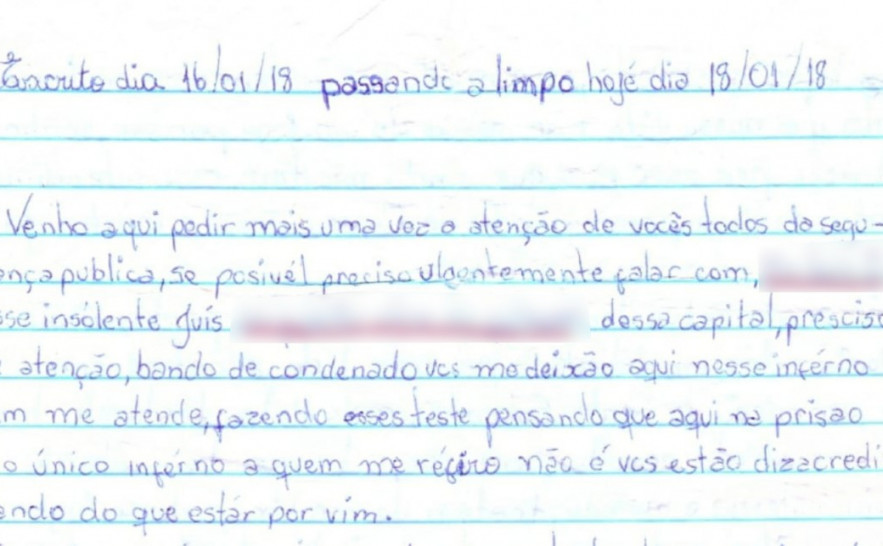 Escrito dia 16/01/18 passando a limpo hoje dia 18/01/18
Venho aqui pedir mais uma vez a atenção de vocês todos da segu-
ença publica, se posivél preciso ulgentemente falar com,
se insolente juís dessa capital, presciso
atenção, bando de condenado vcs me deixão aqui nesse inférno
m me atende, fazendo esses teste pensando que aqui na prisao
o único inférno a quem me réfiro não é vcs estão dizacredi
ando do que estár por vím.